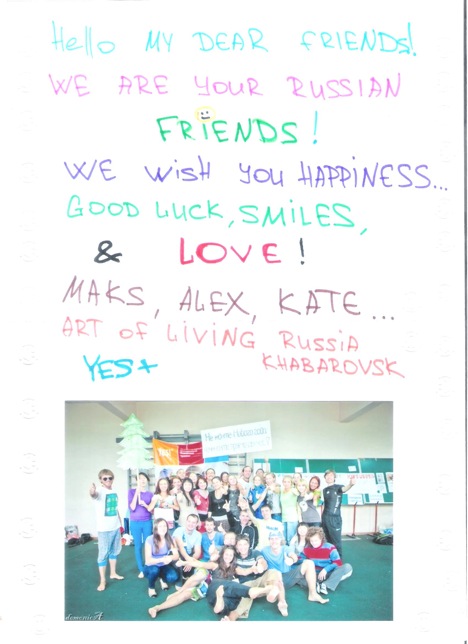 Hello MY DEAR FRIENDS!
WE ARE YOUR RUSSIAN
FRiENDS!
WE WiSH YOU HAPPiNESS...
GOOD LUCK, SMILES,
& LOVE!
MAKS, ALEX, KATE...
ART OF LiViNG RUSSiA
YES+ KHABAROVSK